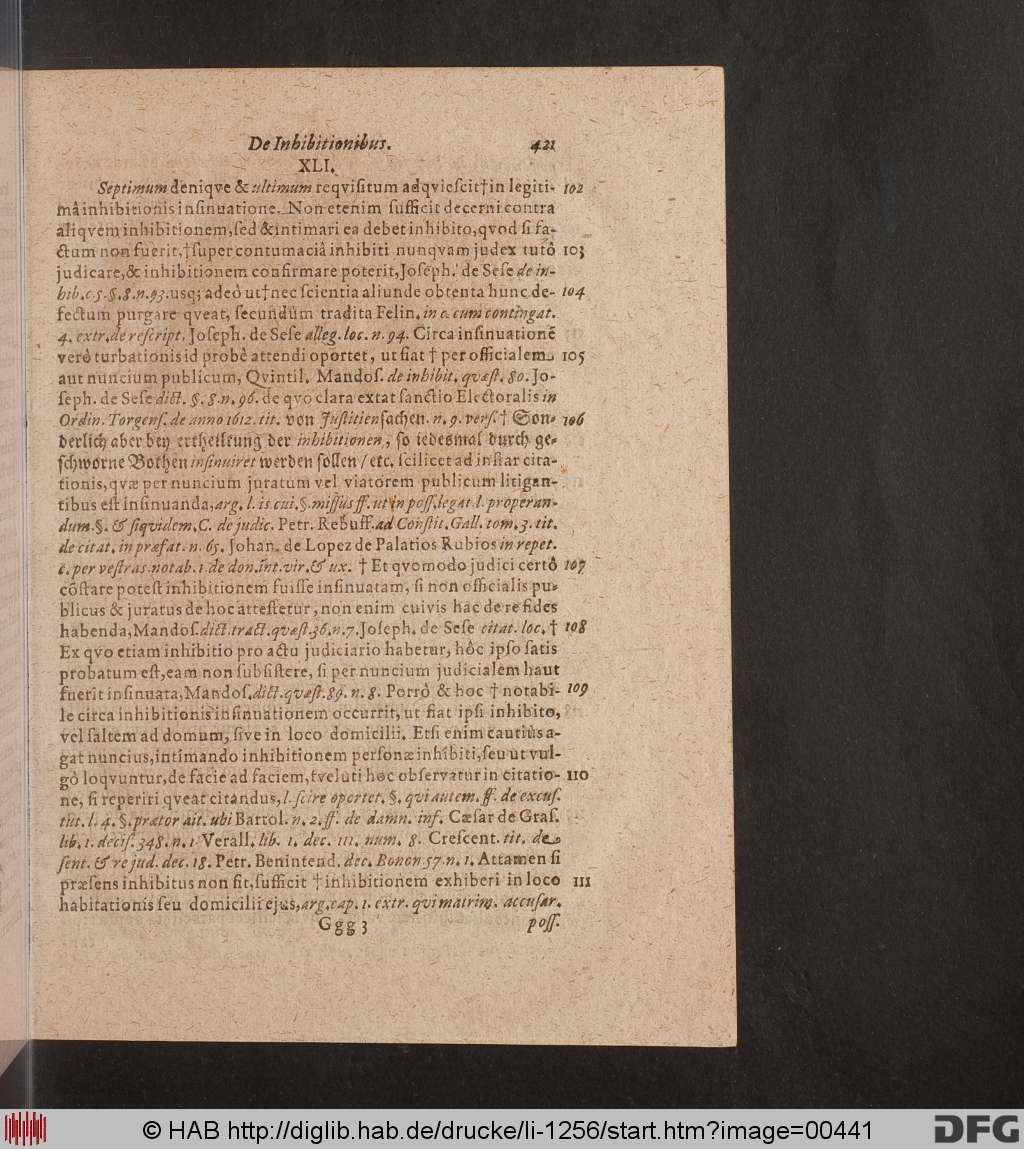 De Inhibitionibus. 421
XLI.
Septimum deniqve & ultimum reqviſitum adqvieſcit † in legiti- 102
mâ inhibitionis inſinuatione. Non etenim ſufficit decerni contra
aliqvem inhibitionem, ſed & intimari ea debet inhibito, qvod ſi fa-
ctum non fuerit, † ſuper contumaciâ inhibiti nunqvam judex tutò 103
judicare, & inhibitionem confirmare poterit, Joſeph. de Seſe de in-
hib. c. 5. §. 8. n. 93. usq; adeò ut † nec ſcientia aliunde obtenta hunc de- 104
fectum purgare qveat, ſecundùm tradita Felin. in c. cum contingat.
4. extr. de reſcript. Joſeph. de Seſe alleg. loc. n. 94. Circa inſinuationē
verò turbationis id probè attendi oportet, ut fiat † per officialem 105
aut nuncium publicum, Qvintil. Mandoſ. de inhibit. qvæſt. 80. Jo-
ſeph. de Seſe dict. §. 8. n. 96. de qvo clara extat ſanctio Electoralis in
Ordin. Torgenſ. de anno 1612. tit. von Juſtitien ſachen. n. 9. verſ. † Son- 106
derlich aber bey ertheilung der inhibitionen, ſo iedesmal durch ge-
ſchworne Bothen inſinuiret werden ſollen / etc. ſcilicet ad inſtar cita-
tionis, qvæ per nuncium juratum vel viatorem publicum litigan-
tibus eſt inſinuanda, arg. l. is cui. §. miſſus ff. ut in poſſ. legat. l. properan-
dum. §. & ſiqvidem. C. de judic. Petr. Rebuff. ad Conſtit. Gall. tom. 3. tit.
de citat. in præfat. n. 65. Johan. de Lopez de Palatios Rubios in repet.
c. per veſtras. notab. 1. de don. int. vir. & ux. † Et qvomodo judici certò 107
cōſtare poteſt inhibitionem fuiſſe inſinuatam, ſi non officialis pu-
blicus & juratus de hoc atteſtetur, non enim cuivis hac de re fides
habenda, Mandoſ. dict. tract. qvæſt. 36. n. 7. Joſeph. de Seſe citat. loc. † 108
Ex qvo etiam inhibitio pro actu judiciario habetur, hôc ipſo ſatis
probatum eſt, eam non ſubſiſtere, ſi per nuncium judicialem haut
fuerit inſinuata, Mandoſ. dict. qvæſt. 89. n. 8. Porrò & hoc † notabi- 109
le circa inhibitionis inſinuationem occurrit, ut fiat ipſi inhibito,
vel ſaltem ad domum, ſive in loco domicilii. Etſi enim cautiùs a-
gat nuncius, intimando inhibitionem perſonæ inhibiti, ſeu ut vul-
gò loqvuntur, de facie ad faciem, † veluti hoc obſervatur in citatio- 110
ne, ſi reperiri qveat citandus, l. ſcire oportet. §. qvi autem. ff. de excuſ.
tut. l. 4. §. prætor ait. ubi Bartol. n. 2. ff. de damn. inf. Cæſar de Graſ.
lib. 1. deciſ. 348. n. 1 Verall. lib. 1. dec. 111. num. 8. Creſcent. tit. de
ſent. & re jud. dec. 18. Petr. Benintend. dec. Bonon 57. n. 1. Attamen ſi
præſens inhibitus non ſit, ſufficit † inhibitionem exhiberi in loco 111
habitationis ſeu domicilii ejus, arg. cap. 1. extr. qvi matrim. accuſar.
Ggg 3 poſſ.
© HAB http://diglib.hab.de/drucke/li-1256/start.htm?image=00441
DFG